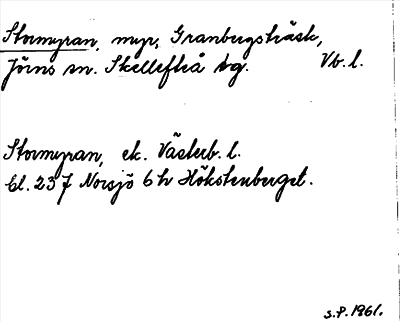 Stormyran, myr, Granbergsträsk,
Jörns sn. Skellefteå tg. Vb. l.
Stormyran, ek. Västerb. l.
Bl. 23 J Norsjö 6 h Hökstenberget.
S.P. 1961.